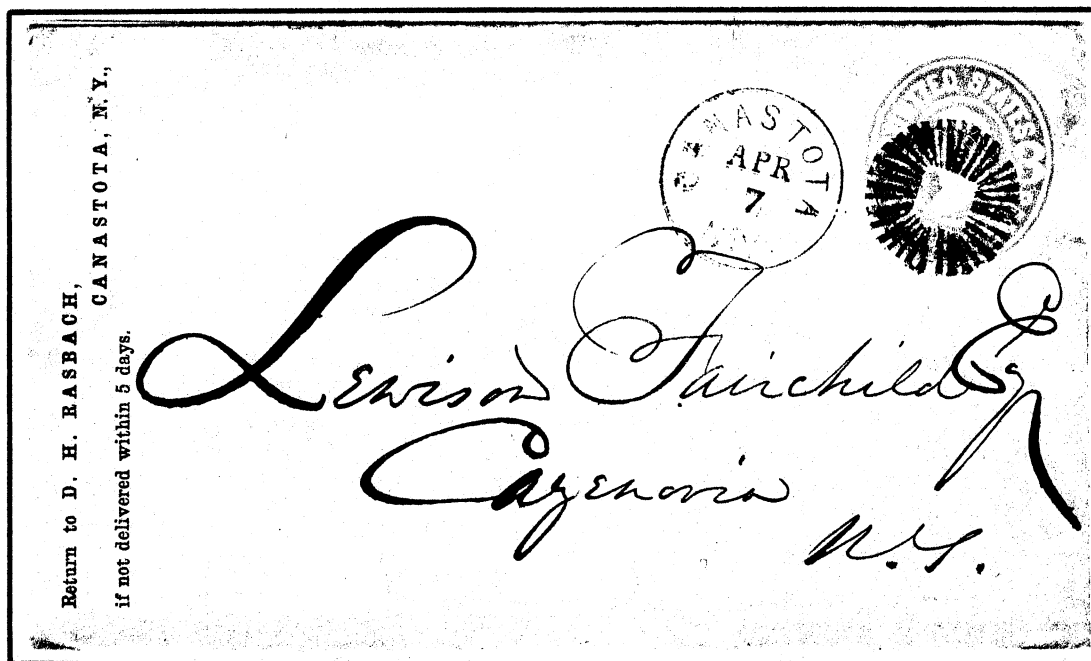 Return to D. H. RASBACH,
CANASTOTA, N.Y.,
if not delivered within 5 days.
CANASTOTA
APR
7
UNITED STATES
Lewison Fairchild Esqr
Cazenovia
N.Y.